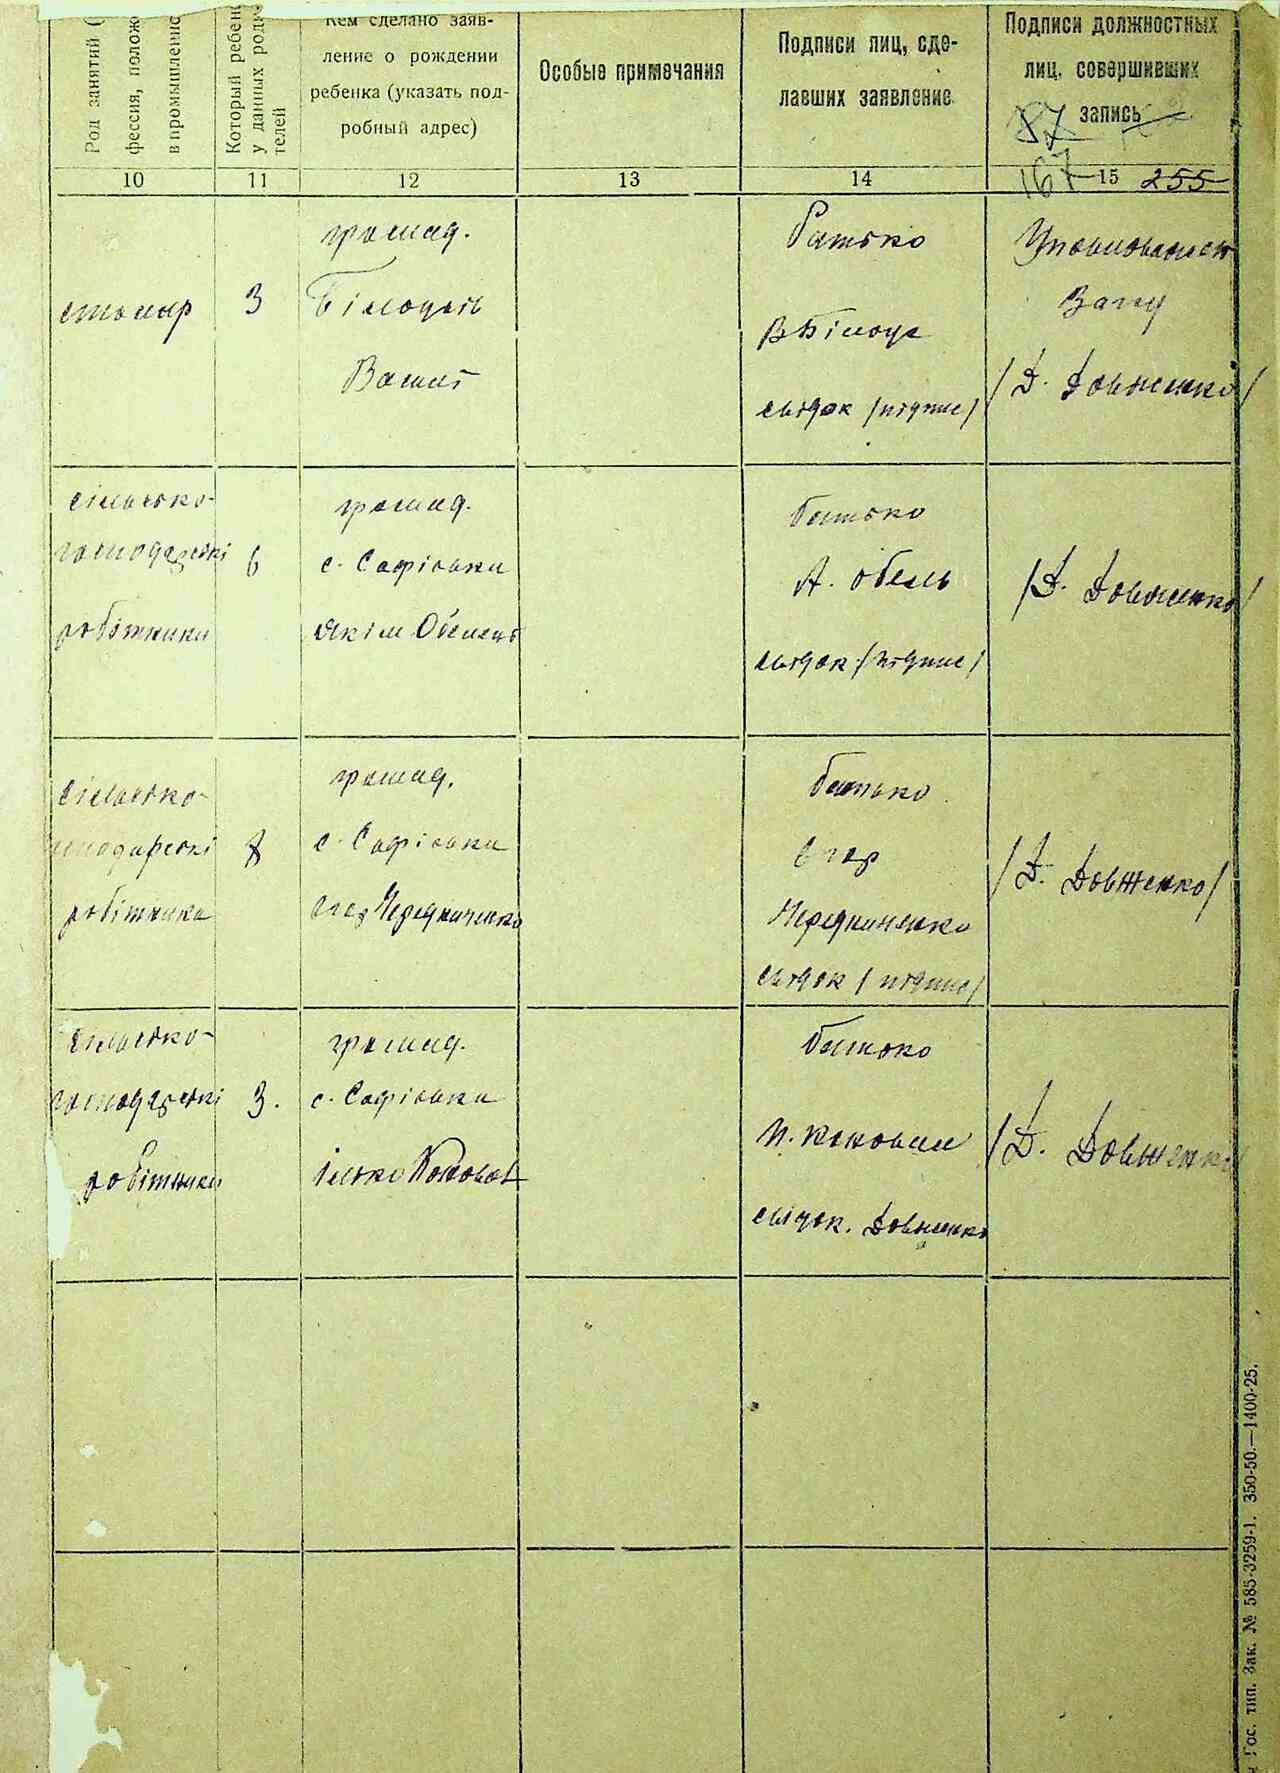 Род занятий (
фессия, полож
в промышленнос
Который ребено
у данных роди-
телей
Кем сделано заяв-
ление о рождении
ребенка (указать под-
робный адрес)
Особые примечания
Подписи лиц, сде-
лавших заявление
Подписи должностных
лиц, совершивших
запись
87
10
11
12
13
14
167
15
255
столяр
3
громад.
Білодать
Батько
В Біло
свідок /підпис/
Загсу
/Д. Довженко/
сільсько-
господарські
робітники
6
громад.
с. Софіївки
Яким
батько
А. Обель
свідок /підпис/
/Д. Довженко/
сільсько-
господарські
робітники
8
громад.
с. Софіївки
Чередниченко
батько
Егор
Чередниченко
свідок /підпис/
/Д. Довженко/
сільсько-
господарські
робітники
3.
громад.
с. Софіївки
Ілько Коновал
батько
И. Коновал
свідок. Довженко
/Д. Довженко
Гос. тип. Зак. № 585-3259-1. 350-50.—1400-25.